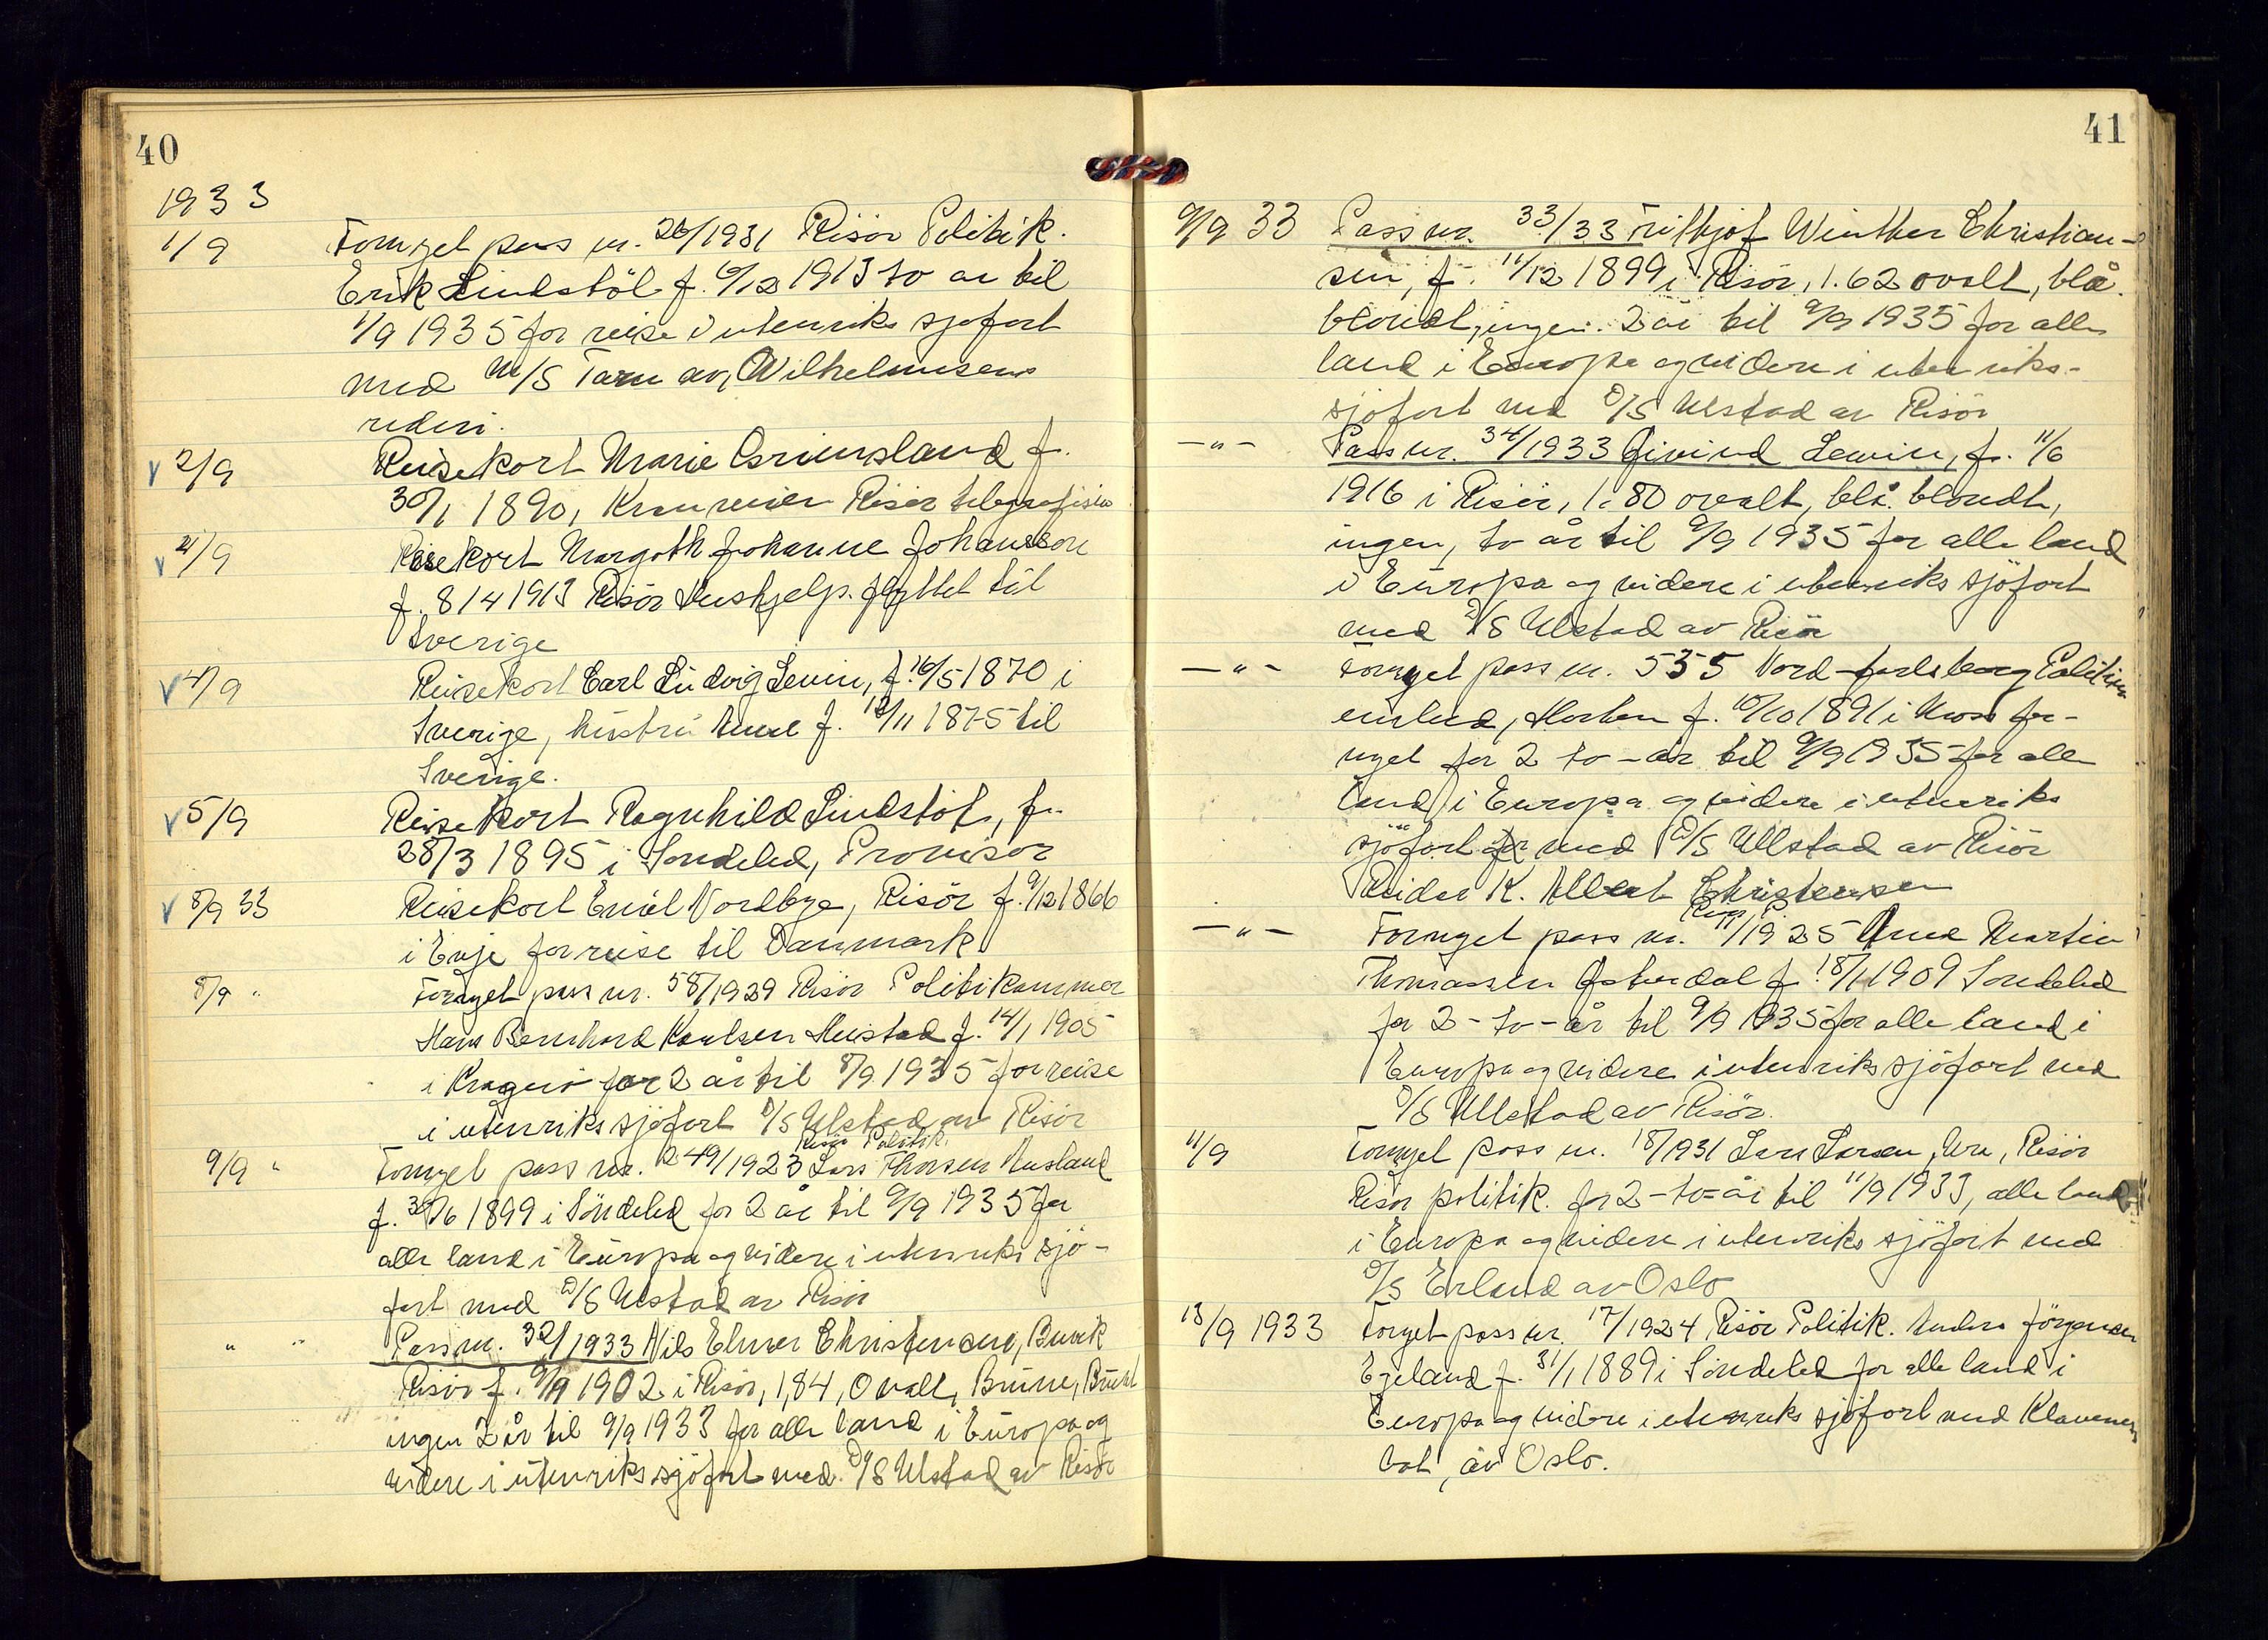 40
1933
1/9 Fornyet pass nr. 26/1931 Risör Politik.
Erik Lindstöl f. 6/12 1913 to år til
1/9 1935 for reise i utenriks sjöfart
med M/S Tarn av, Wilhelmsens
rederi.
2/9 Reisekort Marie Grimsland f.
30/1 1890, Risör telegrafistin
4/9 Reisekort Margoth Johanne Johansson
f. 8/4 1913 Risör Hushjelp. flyttet til
Sverige
4/9 Reisekort Carl Ludvig Lewin, f. 16/5 1870 i
Sverige, hustru Anne f. 18/11 1875 til
Sverige.
5/9 Reisekort Ragnhild Lindstöl, f.
28/3 1895 i Söndeled, Provisor
8/9 33 Reisekort Emil Nordbye, Risör f. 9/12 1866
i Evje for reise til Danmark
8/9 " Fornyet pass nr. 58/1929 Risör Politikammer
Hans Bernhard Knutsen f. 14/1 1905
i Kragerö for 2 år til 8/9 1935 for reise
i utenriks sjöfart D/S Ulstad av Risör
Risör Politik.
9/9 " Fornyet pass nr. 249/1923 Lars Thorsen Ausland
f. 30/6 1899 i Söndeled for 2 år til 9/9 1935 for
alle land i Europa og videre i utenriks sjö-
fart med D/S Ulstad av Risör
" " Pass nr. 32/1933 Nils Elmer Christensen, Buvik
Risör f. 9/9 1902 i Risör, 1,84, Ovalt, Brune, Brunt
ingen 2 år til 9/9 1933 for alle land i Europa og
videre i utenriks sjöfart med D/S Ulstad av Risör
41
9/9 33 Pass nr. 33/33 Frithjof Winther Christian-
sen, f. 11/12 1899 i Risör, 1.62 ovalt, blå.
blondt, ingen. 2 år til 9/9 1935 for alle
land i Europa og videre i utenriks-
sjöfart med D/S Ulstad av Risör
—"— Pass nr. 34/1933 Eivind Lewin, f. 11/6
1916 i Risör, 1.80 ovalt, blå. blondt,
ingen, to år til 9/9 1935 for alle land
i Europa og videre i utenriks sjöfart
med D/S Ulstad av Risör
—"— Fornyet pass nr. 535 Nord-Jarlsberg Politim
embed, Horten f. 10/10 1891 i Moss for-
nyet for 2 to-år til 9/9 1935 for alle
land i Europa og videre i utenriks
sjöfart for med D/S Ullstad av Risör
Reidar K. Albert Christensen
Risör P.
—"— Fornyet pass nr. 11/1925 Arne Martin
Thomassen Österdal f. 18/1 1909 Söndeled
for 2-to-år til 9/9 1935 for alle land i
Europa og videre i utenriks sjöfart med
D/S Ullstad av Risör.
11/9 Fornyet pass nr. 18/1931 Lars Larsen, Ure, Risör
Risör politik. for 2-to-år til 11/9 1933, alle land
i Europa og videre i utenriks sjöfart med
D/S Erland av Oslo
13/9 1933 Fornyet pass nr. 17/1924 Risör Politik. Anders Jörgensen
Egeland f. 31/1 1889 i Söndeled for alle land i
Europa og videre i utenriks sjöfart med Klavenes
båt, av Oslo.